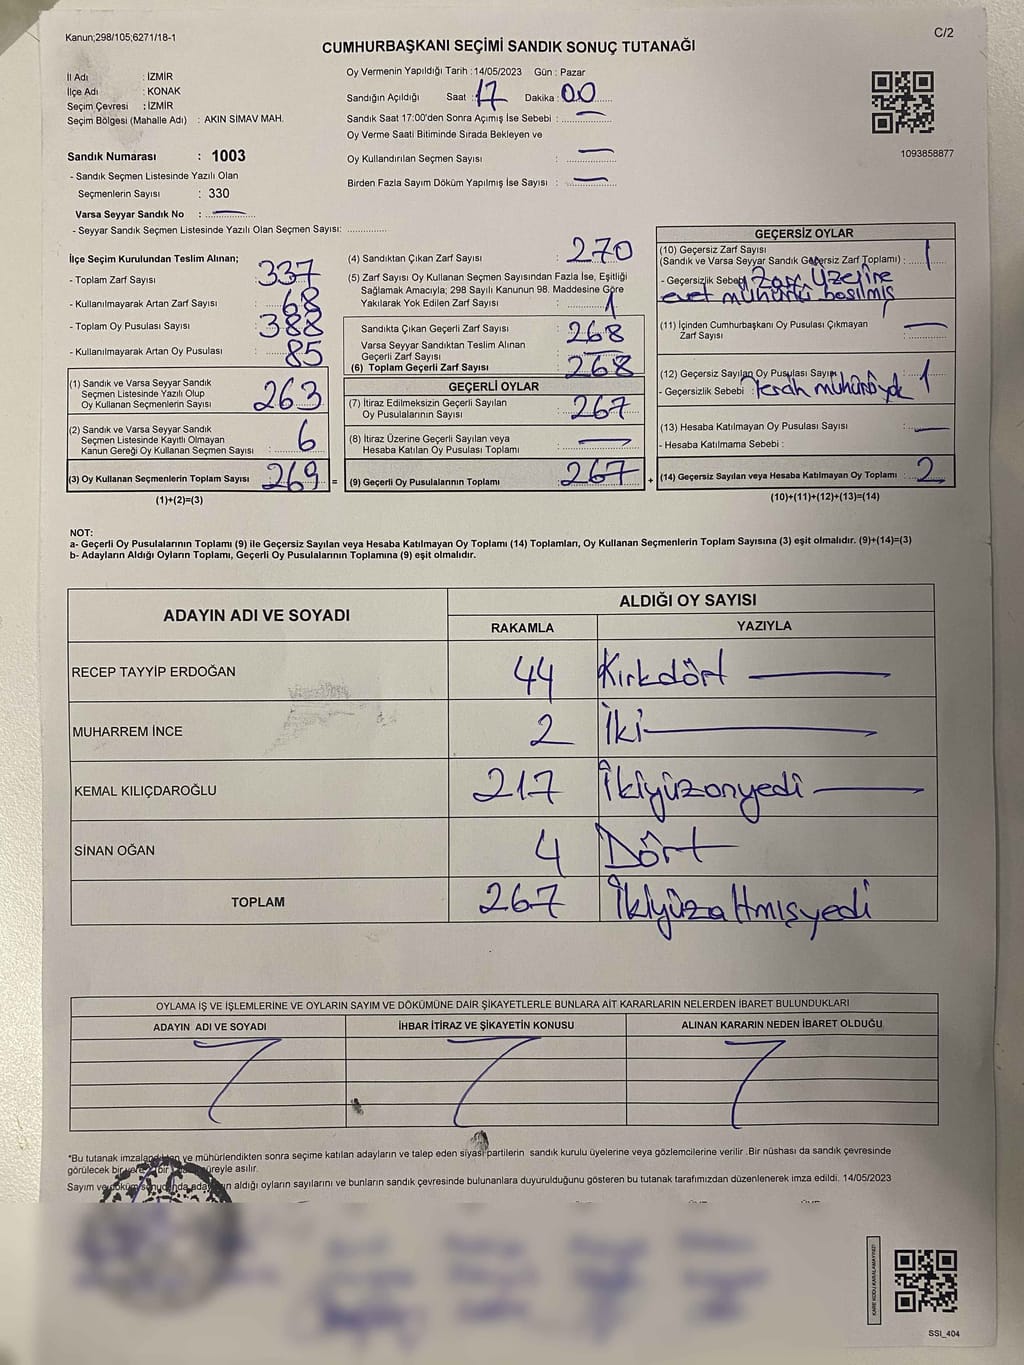 Kanun;298/105;6271/18-1
C/2
CUMHURBAŞKANI SEÇİMİ SANDIK SONUÇ TUTANAĞI
İl Adı : İZMİR
İlçe Adı : KONAK
Seçim Çevresi : İZMİR
Seçim Bölgesi (Mahalle Adı) : AKIN SIMAV MAH.
Sandık Numarası : 1003
- Sandık Seçmen Listesinde Yazılı Olan
Seçmenlerin Sayısı : 330
Varsa Seyyar Sandık No :
- Seyyar Sandık Seçmen Listesinde Yazılı Olan Seçmen Sayısı:
Oy Vermenin Yapıldığı Tarih : 14/05/2023 Gün : Pazar
Sandığın Açıldığı Saat : 17 Dakika : 00
Sandık Saat 17:00'den Sonra Açımış İse Sebebi :
Oy Verme Saati Bitiminde Sırada Bekleyen ve
Oy Kullandırılan Seçmen Sayısı :
Birden Fazla Sayım Döküm Yapılmış İse Sayısı :
1093858877
İlçe Seçim Kurulundan Teslim Alınan;
- Toplam Zarf Sayısı : 337
- Kullanılmayarak Artan Zarf Sayısı : 68
- Toplam Oy Pusulası Sayısı : 388
- Kullanılmayarak Artan Oy Pusulası : 85
(1) Sandık ve Varsa Seyyar Sandık
Seçmen Listesinde Yazılı Olup
Oy Kullanan Seçmenlerin Sayısı : 263
(2) Sandık ve Varsa Seyyar Sandık
Seçmen Listesinde Kayıtlı Olmayan
Kanun Gereği Oy Kullanan Seçmen Sayısı : 6
(3) Oy Kullanan Seçmenlerin Toplam Sayısı 269 =
(1)+(2)=(3)
(4) Sandıktan Çıkan Zarf Sayısı : 270
(5) Zarf Sayısı Oy Kullanan Seçmen Sayısından Fazla İse, Eşitliği
Sağlamak Amacıyla; 298 Sayılı Kanunun 98. Maddesine Göre
Yakılarak Yok Edilen Zarf Sayısı : 1
Sandıkta Çıkan Geçerli Zarf Sayısı : 268
Varsa Seyyar Sandıktan Teslim Alınan
Geçerli Zarf Sayısı :
(6) Toplam Geçerli Zarf Sayısı : 268
GEÇERLİ OYLAR
(7) İtiraz Edilmeksizin Geçerli Sayılan
Oy Pusulalarının Sayısı : 267
(8) İtiraz Üzerine Geçerli Sayılan veya
Hesaba Katılan Oy Pusulası Toplamı :
(9) Geçerli Oy Pusulalarının Toplamı : 267 +
GEÇERSİZ OYLAR
(10) Geçersiz Zarf Sayısı
(Sandık ve Varsa Seyyar Sandık Geçersiz Zarf Toplamı) : 1
- Geçersizlik Sebebi Zarf Üzerine
evet mühürü basılmış
(11) İçinden Cumhurbaşkanı Oy Pusulası Çıkmayan
Zarf Sayısı :
(12) Geçersiz Sayılan Oy Pusulası Sayısı : 1
- Geçersizlik Sebebi : Tercih mühürü yok
(13) Hesaba Katılmayan Oy Pusulası Sayısı :
- Hesaba Katılmama Sebebi :
(14) Geçersiz Sayılan veya Hesaba Katılmayan Oy Toplamı : 2
(10)+(11)+(12)+(13)=(14)
NOT:
a- Geçerli Oy Pusulalarının Toplamı (9) ile Geçersiz Sayılan veya Hesaba Katılmayan Oy Toplamı (14) Toplamları, Oy Kullanan Seçmenlerin Toplam Sayısına (3) eşit olmalıdır. (9)+(14)=(3)
b- Adayların Aldığı Oyların Toplamı, Geçerli Oy Pusulalarının Toplamına (9) eşit olmalıdır.
ADAYIN ADI VE SOYADI
ALDIĞI OY SAYISI
RAKAMLA YAZIYLA
RECEP TAYYİP ERDOĞAN 44 Kırkdört
MUHARREM İNCE 2 İki
KEMAL KILIÇDAROĞLU 217 İkiyüzonyedi
SİNAN OĞAN 4 Dört
TOPLAM 267 İkiyüzaltmışyedi
OYLAMA İŞ VE İŞLEMLERİNE VE OYLARIN SAYIM VE DÖKÜMÜNE DAİR ŞİKAYETLERLE BUNLARA AİT KARARLARIN NELERDEN İBARET BULUNDUKLARI
ADAYIN ADI VE SOYADI
İHBAR İTİRAZ VE ŞİKAYETİN KONUSU
ALINAN KARARIN NEDEN İBARET OLDUĞU
*Bu tutanak imzalandıktan ve mühürlendikten sonra seçime katılan adayların ve talep eden siyasi partilerin sandık kurulu üyelerine veya gözlemcilerine verilir .Bir nüshası da sandık çevresinde
görülecek bir yere bir süreyle asılır.
Sayım ve döküm sonucunda adayların aldığı oyların sayılarını ve bunların sandık çevresinde bulunanlara duyurulduğunu gösteren bu tutanak tarafımızdan düzenlenerek imza edildi. 14/05/2023
KARE KODU KARALAMAYINIZ!
SSI_404